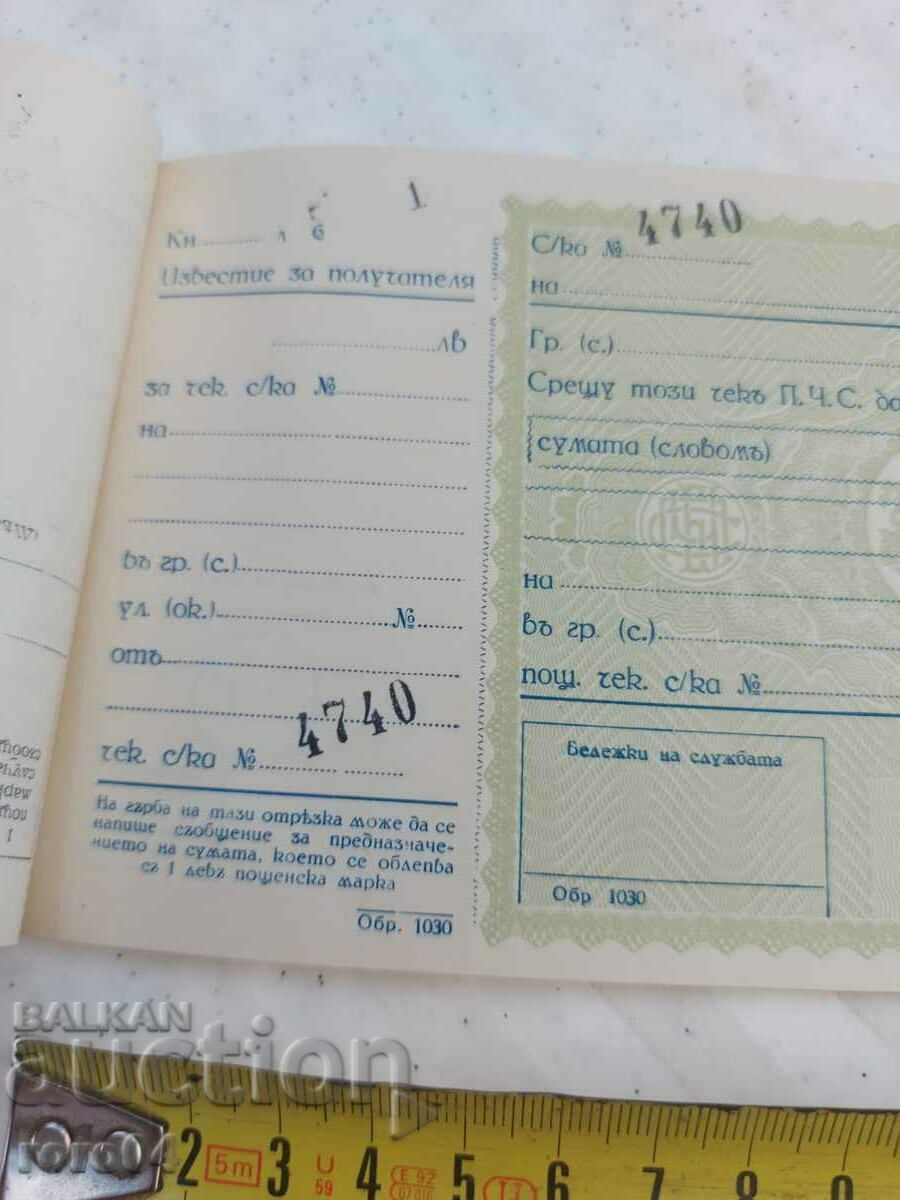 Кн.
1
Известие за получателя
лв
за чек. с/ка №
на
въ гр. (с.)
ул. (ок.) №
отъ
4740
чек. с/ка №
На гърба на тази отрѣзка може да се
напише съобщение за предназначе-
нието на сумата, което се облепва
съ 1 левъ пощенска марка
Обр. 1030
С/ка № 4740
на
Гр. (с.)
Срещу този чекъ П.Ч.С. да
сумата (словомъ)
на
въ гр. (с.)
пощ. чек. с/ка №
Бележки на службата
Обр 1030
BALKAN
auction
roro04
2 5m 3 U 59 4 E 92 5 II 6 7 8 9